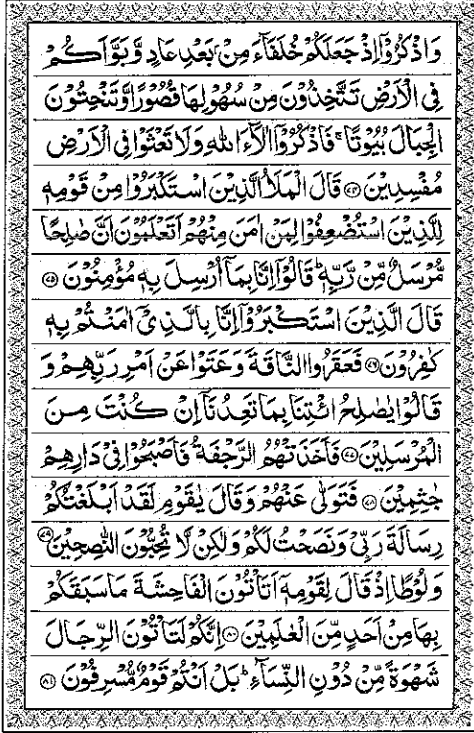 وَاذْكُرُوْۤا اِذْ جَعَلَكُمْ خُلَفَآءَ مِنْۢ بَعْدِ عَادٍ وَّ بَوَّاَكُمْ
فِی الْاَرْضِ تَتَّخِذُوْنَ مِنْ سُهُوْلِهَا قُصُوْرًا وَّ تَنْحِتُوْنَ
الْجِبَالَ بُیُوْتًا ۚ فَاذْكُرُوْۤا اٰلَآءَ اللّٰهِ وَلَا تَعْثَوْا فِی الْاَرْضِ
مُفْسِدِیْنَ ﴿۷۴﴾ قَالَ الْمَلَاُ الَّذِیْنَ اسْتَكْبَرُوْا مِنْ قَوْمِهٖ
لِلَّذِیْنَ اسْتُضْعِفُوْا لِمَنْ اٰمَنَ مِنْهُمْ اَتَعْلَمُوْنَ اَنَّ صٰلِحًا
مُّرْسَلٌ مِّنْ رَّبِّهٖ ؕ قَالُوْۤا اِنَّا بِمَاۤ اُرْسِلَ بِهٖ مُؤْمِنُوْنَ ﴿۷۵﴾
قَالَ الَّذِیْنَ اسْتَكْبَرُوْۤا اِنَّا بِالَّذِیْۤ اٰمَنْتُمْ بِهٖ
كٰفِرُوْنَ ﴿۷۶﴾ فَعَقَرُوا النَّاقَةَ وَ عَتَوْا عَنْ اَمْرِ رَبِّهِمْ وَ
قَالُوْا یٰصٰلِحُ ائْتِنَا بِمَا تَعِدُنَاۤ اِنْ كُنْتَ مِنَ
الْمُرْسَلِیْنَ ﴿۷۷﴾ فَاَخَذَتْهُمُ الرَّجْفَةُ فَاَصْبَحُوْا فِیْ دَارِهِمْ
جٰثِمِیْنَ ﴿۷۸﴾ فَتَوَلّٰی عَنْهُمْ وَقَالَ یٰقَوْمِ لَقَدْ اَبْلَغْتُكُمْ
رِسَالَةَ رَبِّیْ وَ نَصَحْتُ لَكُمْ وَلٰكِنْ لَّا تُحِبُّوْنَ النّٰصِحِیْنَ ﴿۷۹﴾
وَ لُوْطًا اِذْ قَالَ لِقَوْمِهٖۤ اَتَاْتُوْنَ الْفَاحِشَةَ مَا سَبَقَكُمْ
بِهَا مِنْ اَحَدٍ مِّنَ الْعٰلَمِیْنَ ﴿۸۰﴾ اِنَّكُمْ لَتَاْتُوْنَ الرِّجَالَ
شَهْوَةً مِّنْ دُوْنِ النِّسَآءِ ؕ بَلْ اَنْتُمْ قَوْمٌ مُّسْرِفُوْنَ ﴿۸۱﴾